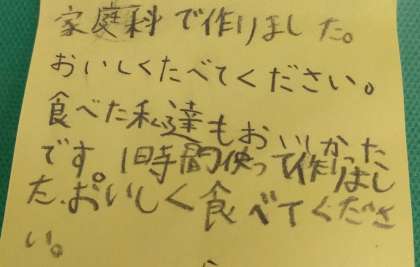 家庭科で作りました。
おいしくたべてください。
食べた私達もおいしかった
です。1時間使って作りまし
た、おいしく食べてくださ
い。